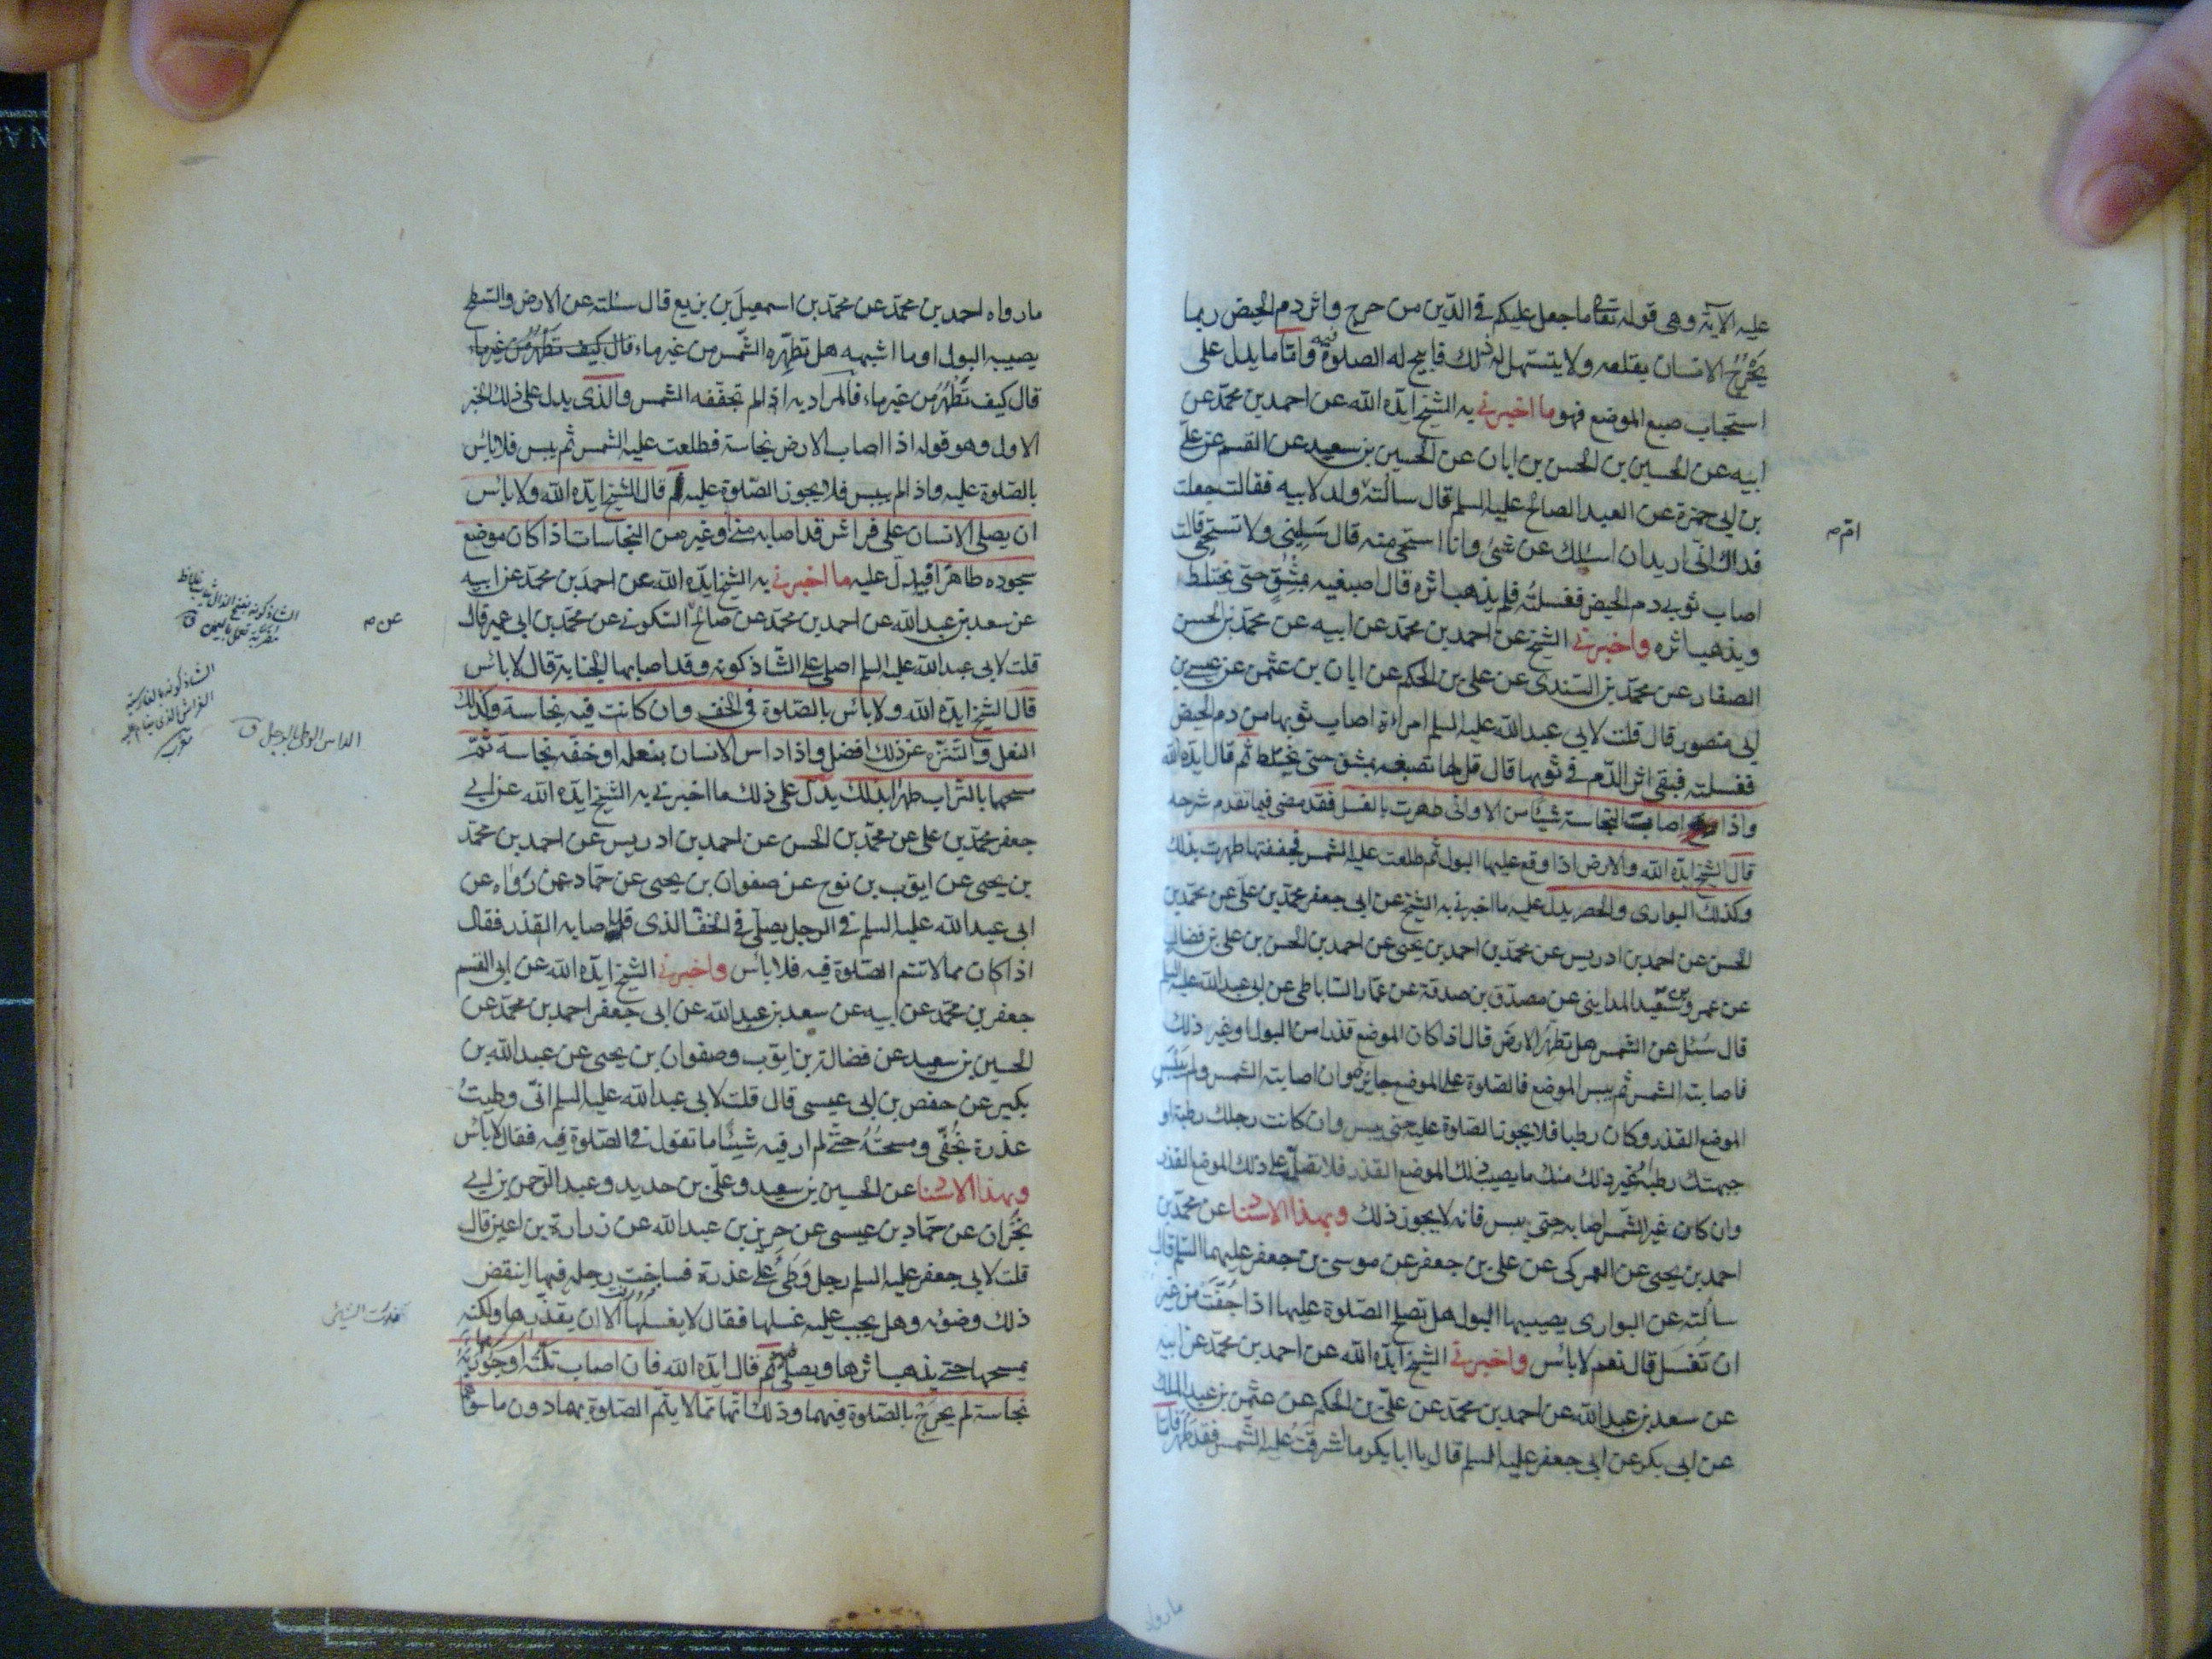 عليه الاية وهى قوله تعالى ما جعل عليكم فى الدّين من حرج واثر دم الحيض ربما
يَحْرَجُ الانسان بقلعه ولا يتسهل له ذلك فابيح له الصلوة فيه وامّا ما يدل على
استحباب صبغ الموضع فهو ما اخبرنى به الشيخ ايّده الله عن احمد بن محمّد عن
ابيه عن الحسين بن الحسن بن ابان عن الحسين بن سعيد عن القسم عن علىّ
بن ابى حمزة عن العبد الصالح عليه السلم قال سألته ولد لابيه فقالت جعلت
ام ص
فداك انّى اريد ان اسئلك عن شئ وانا استحى منه قال سَلِينى ولا تستحى قالت
اصاب ثوبى دم الحيض فغسلتُه فلم يذهب اثره قال اصبغيه بمِشْقٍ حتى يختلط
ويذهب اثره واخبرنى الشيخ عن احمد بن محمّد عن ابيه عن محمّد بن الحسن
الصفار عن محمّد بن السّندى عن على بن الحكم عن ابان بن عثمن عن عيسى بن
ابى منصور قال قلت لابى عبد الله عليه السلم امراة اصاب ثوبها من دم الحيض
فغسلته فبقى اثر الدّم فى ثوبها قال قل لها تصبغه بمشق حتى يختلط ثم قال ايّده الله
واذا اصابت النجاسة شيئا من الاوانى طهرت بالغسل فقد مضى فيما تقدم شرحه
قال الشيخ ايّده الله والارض اذا وقع عليها البول ثم طلعت عليها الشمس فجففتها طهرت بذلك
وكذلك البوارى والحصر يدلّ عليه ما اخبرنى به الشيخ عن ابى جعفر محمّد بن علىّ عن محمّد بن
الحسن عن احمد بن ادريس عن محمّد بن احمد بن يحيى عن احمد بن الحسن بن على بن فضال
عن عمرو بن سعيد المداينى عن مصدّق بن صدقة عن عمّار السّاباطى عن ابى عبد الله عليه السلم
قال سُئل عن الشمس هل تطهّر الارض قال اذا كان الموضع قذرا من البول او غير ذلك
فاصابته الشمس ثم يبس الموضع فالصّلوة على الموضع جايزة وان اصابته الشمس ولم يَيْبَس
الموضع القذر وكان رطبا فلا يجوز الصّلوة عليه حتى ييبس وان كانت رجلك رطبة او
جبهتك رطبة او غير ذلك منك ما يصيب ذلك الموضع القذر فلا تصلّ على ذلك الموضع القذر
وان كان غير الشّمس اصابه حتى ييبس فانه لا يجوز ذلك وبهذا الاسنا عن محمّد بن
احمد بن يحيى عن العمركى عن على بن جعفر عن موسى بن جعفر عليهما السّلم قال
سألته عن البوارى يصيبها البول هل تصلح الصّلوة عليها اذا جَفّتْ من غير
ان تُغسَل قال نعم لا بائس واخبرنى الشيخ ايّده الله عن احمد بن محمّد عن ابيه
عن سعد بن عبد الله عن احمد بن محمّد عن علىّ بن الحكم عن عثمن بن عبد الملك
عن ابى بكر عن ابى جعفر عليه السلم قال يا ابا بكر ما اشرقت عليه الشّمس فقد طَهُرَ فامّا
مارواه
مارواه احمد بن محمّد عن محمّد بن اسمعيل بن بزيع قال سئلته عن الارض والسّطح
يصيبه البول او ما اشبهه هل تطهّره الشّمس من غير ماء قال كيف تَطْهُرُ من غير ماء
قال كيف تَطْهُرُ من غير ماء فالمراد به اذا لم تجفّفه الشمس والذى يدل على ذلك الخبر
الاول وهو قوله اذا اصاب الارض نجاسة فطلعت عليه الشمس ثم يبس فلا بائس
بالصّلوة عليه واذا لم ييبس فلا يجوز الصّلوة عليه ثم قال الشيخ ايّده الله ولا بائس
ان يصلى الانسان على فراش قد اصابه منى او غيره من النجاسات اذا كان موضع
سجوده طاهرا فيدلّ عليه ما اخبرنى به الشيخ ايّده الله عن احمد بن محمّد عن ابيه
عن سعد بن عبد الله عن احمد بن محمّد عن صالح السّكونى عن محمّد بن ابى عمير قال
عن ص
قلت لابى عبد الله عليه السلم اصلى على الشّاذكونه وقد اصابها الجنابة قال لا بائس
قال الشيخ ايّده الله ولا بائس بالصّلوة فى الخف وان كانت فيه نجاسة وكذلك
النعل والتّنزّه عن ذلك افضل واذا داس الانسان بنعله او خفّه نجاسة ثمّ
الداس الوطى بالرجل ق
مسحهما بالتّراب طهرا بذلك يدلّ على ذلك ما اخبرنى به الشيخ ايّده الله عن ابى
جعفر محمّد بن على عن محمّد بن الحسن عن احمد بن ادريس عن احمد بن محمّد
بن يحيى عن ايوب بن نوح عن صفوان بن يحيى عن حمّاد عمن رَوَاه عن
ابى عبد الله عليه السلم فى الرجل يصلّى فى الخفّ الذى قد اصابه القذر فقال
اذا كان مما لا تتم الصّلوة فيه فلا بائس واخبرنى الشيخ ايّده الله عن ابى القسم
جعفر بن محمّد عن ابيه عن سعد بن عبد الله عن ابى جعفر احمد بن محمّد عن
الحسين بن سعيد عن فضالة بن ايوب وصفوان بن يحيى عن عبد الله بن
بكير عن حفص بن ابى عيسى قال قلت لابى عبد الله عليه السلم انّى وطيتُ
عذرة بخُفّى ومسحتُهُ حتّى لم ار فيه شيئًا ما تقول فى الصّلوة فيه فقال لا بائس
وبهذا الاسنا عن الحسين بن سعيد وعلىّ بن حديد وعبد الرّحمن بن ابى
نَجْران عن حمّاد بن عيسى عن حريز بن عبد الله عن زرارة بن اعين قال
قلت لابى جعفر عليه السلم رجل وَطِئ على عذرة فساخت رجله فيها اينقض
ذلك وضوئه وهل يجب عليه غسلها فقال لا يغسلها الا ان يقذرها ولكنه
يمسحها حتى يذهب اثرها ويصلى ثم قال ايّده الله فان اصاب تكّته او جَوْرَبه
نجاسة لم يحرَجْ بالصّلوة فيهما وذلك انّهما ممّا لا يتم الصّلوة بهما دون ما سواهما